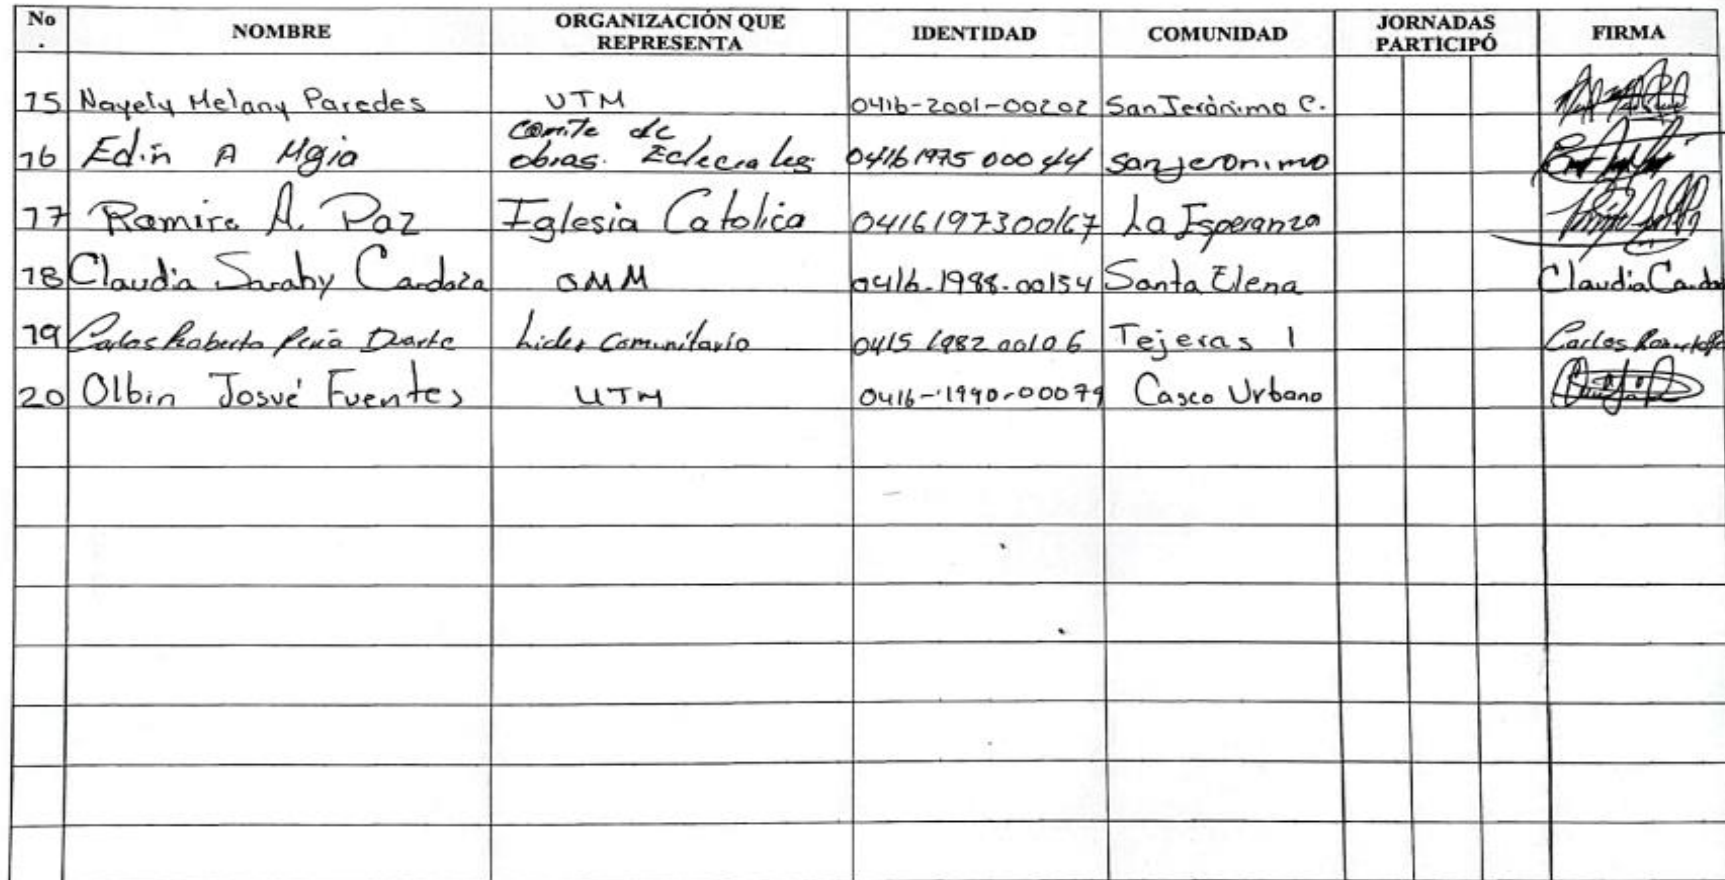 No. NOMBRE ORGANIZACIÓN QUE REPRESENTA IDENTIDAD COMUNIDAD JORNADAS PARTICIPÓ FIRMA
15 Nayely Melany Paredes UTM 0416-2001-00202 San Jerónimo C.
16 Edin A Mejia comite de obras. Ecleciales 04161975 00044 san jeronimo
17 Ramiro A. Paz Iglesia Catolica 0416197300167 La Esperanza
18 Claudia Saraby Cardoza OMM 0416-1988-00154 Santa Elena Claudia Cardo
19 Carlos Roberto Peña Duarte Lider Comunitario 0415 1982 00106 Tejeras 1 Carlos Roberto
20 Olbin Josué Fuentes UTM 0416-1990-00079 Casco Urbano